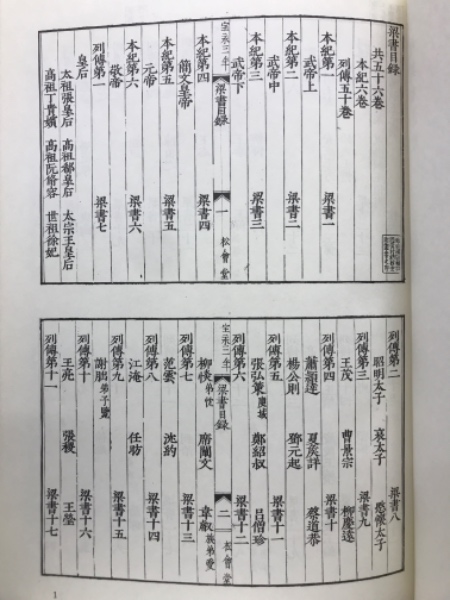 梁書目録
共五十六卷
本紀六卷
列傳五十卷
本紀第一 梁書一
武帝上
本紀第二 梁書二
武帝中
本紀第三 梁書三
武帝下
宝永三年 梁書目録 一 松會堂
本紀第四 梁書四
簡文皇帝
本紀第五 梁書五
元帝
本紀第六 梁書六
敬帝
列傳第一 梁書七
皇后
太祖張皇后 高祖郗皇后 太宗王皇后
高祖丁貴嬪 高祖阮脩容 世祖徐妃
列傳第二 梁書八
昭明太子 哀太子 愍懷太子
列傳第三 梁書九
王茂 曹景宗 柳慶遠
列傳第四 梁書十
蕭穎達 夏侯詳 蔡道恭
楊公則 鄧元起
列傳第五 梁書十一
張弘策 庾域 鄭紹叔 呂僧珍
列傳第六 梁書十二
宝永三年 梁書目録 二 松會堂
柳惔弟忱 席闡文 韋叡族弟愛
列傳第七 梁書十三
范雲 沈約
列傳第八 梁書十四
江淹 任昉
列傳第九 梁書十五
謝朏弟子覽
列傳第十 梁書十六
王亮 張稷 王瑩
列傳第十一 梁書十七
1